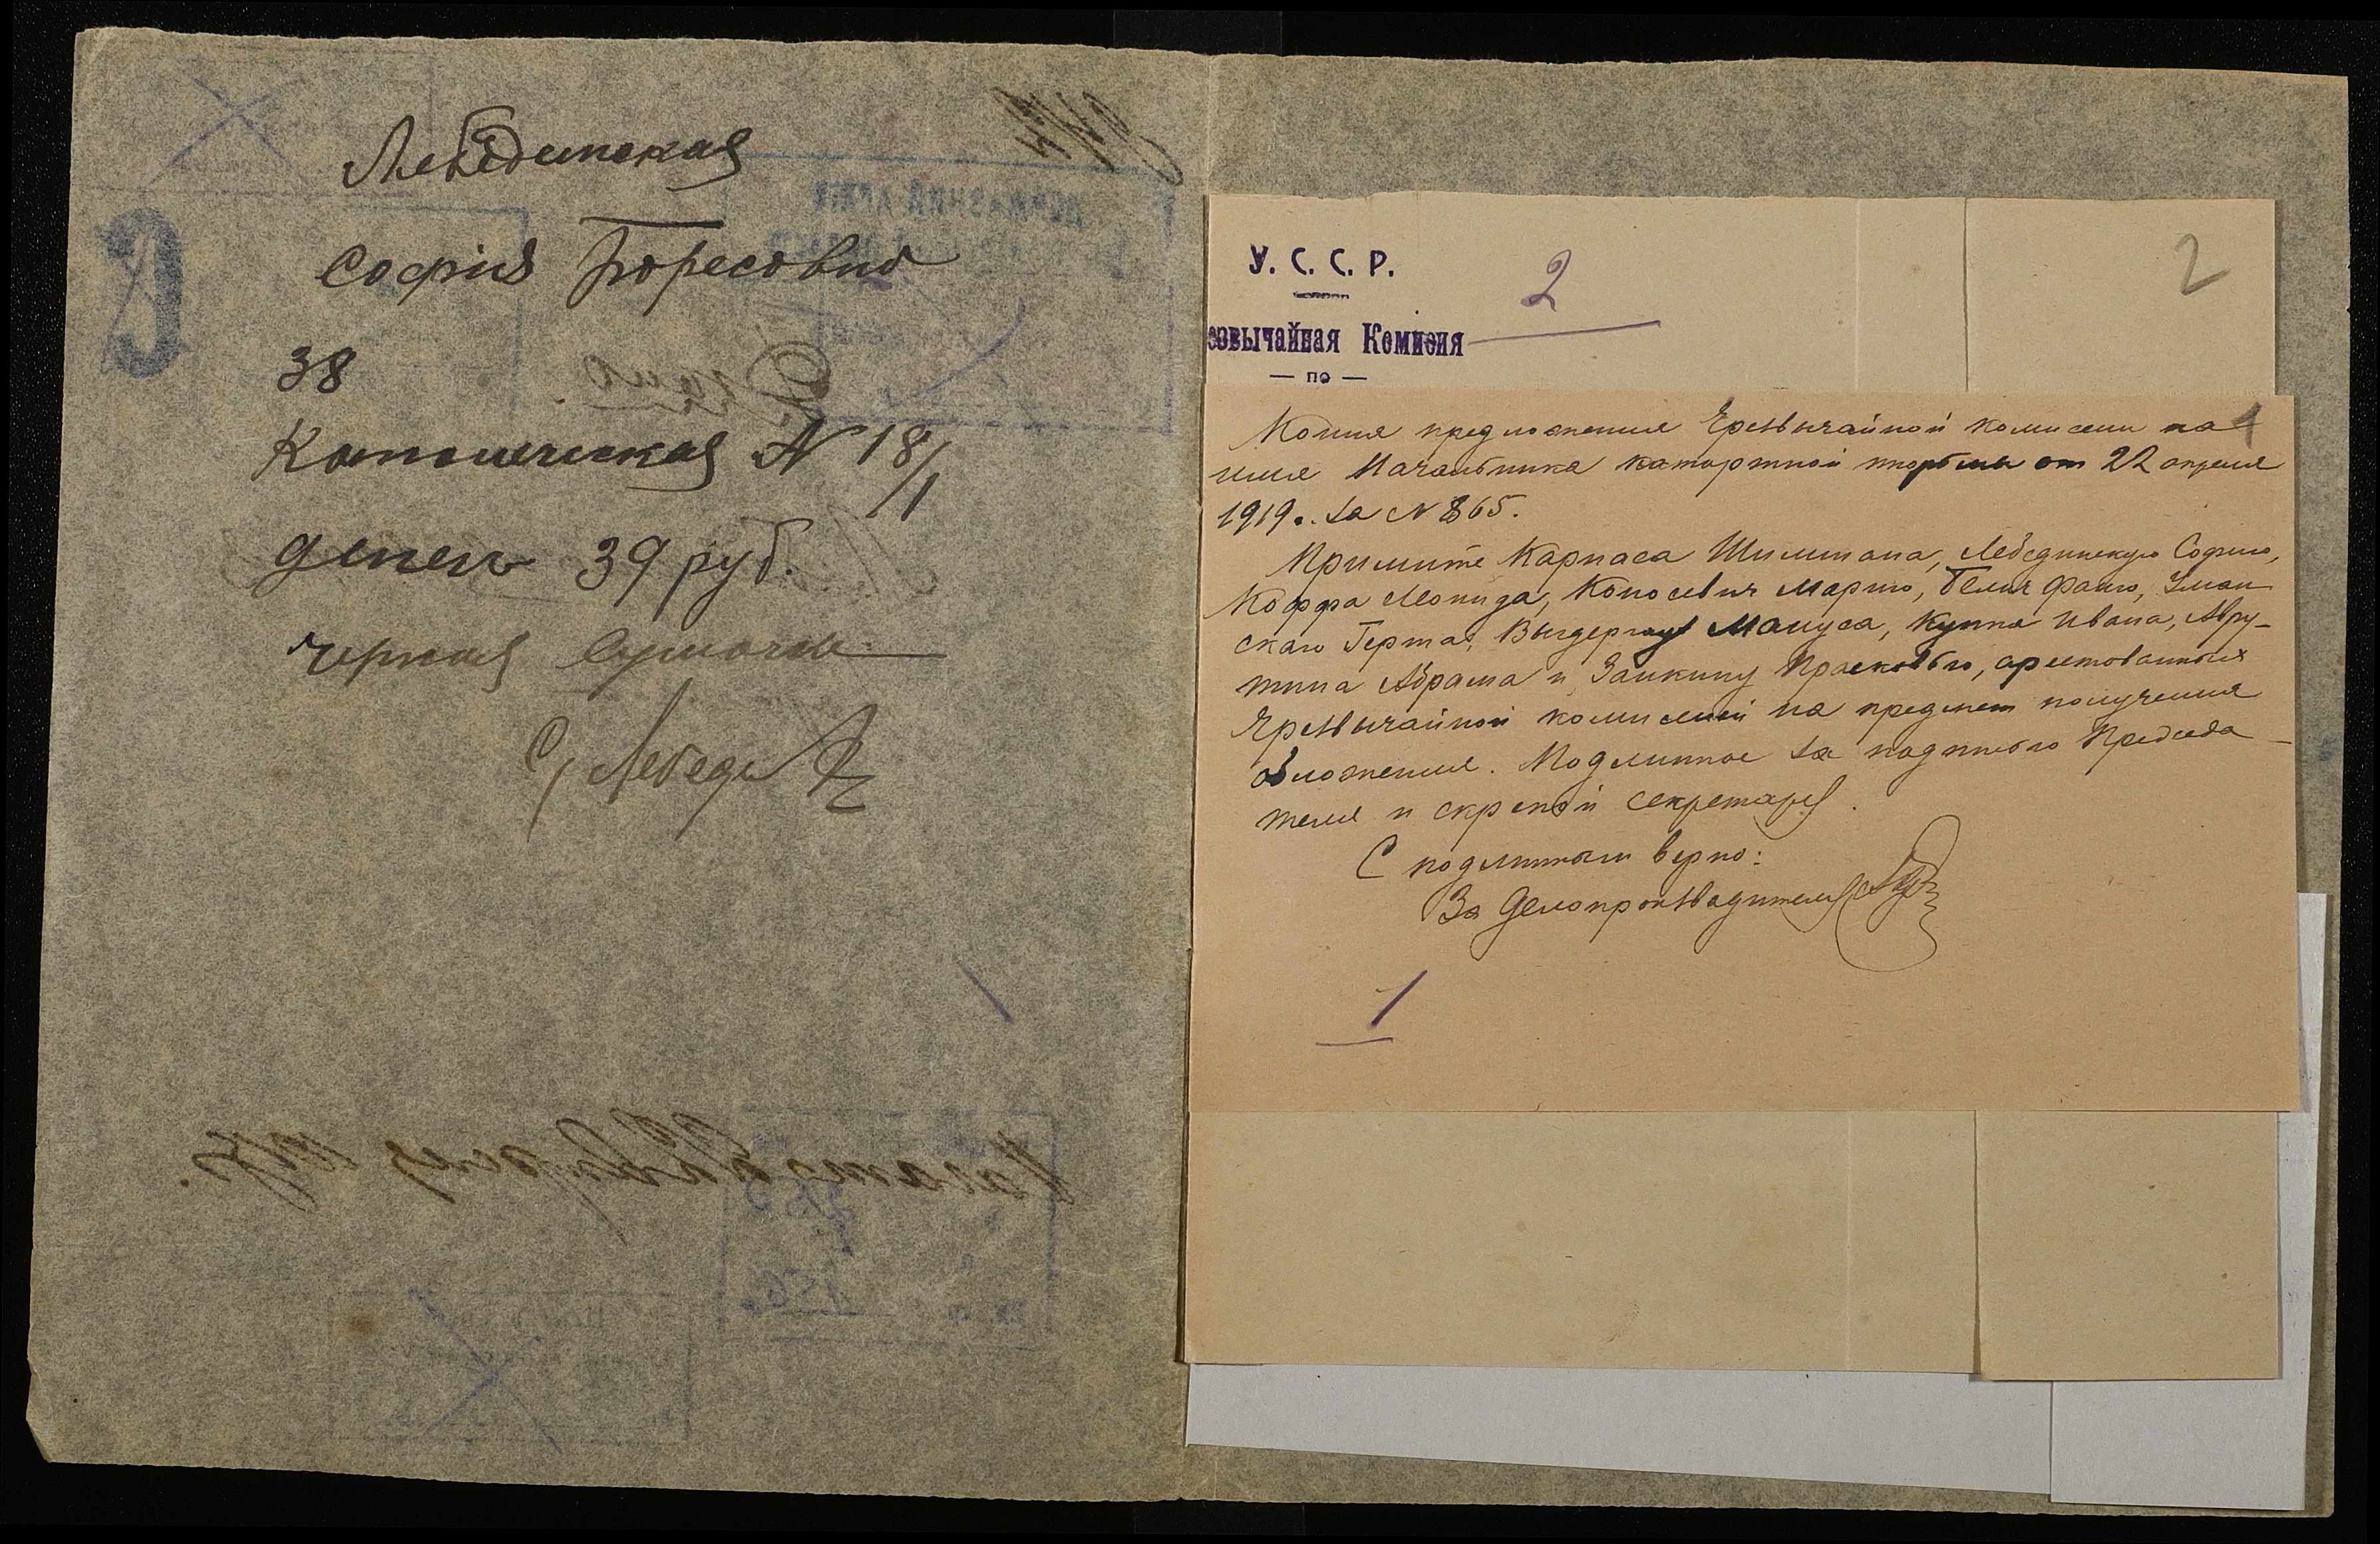 Лебединская
София Борисовна
38
Католическая N 18/1
денег 39 руб.
черная сумочка
С/ Лебеди
У. С. С. Р.
2
2
езвычайная Комисия
— по —
Копия предложения Чрезвычайной комиссии на
1
имя Начальника каторжной тюрьмы от 22 апреля
1919 г. за N 865.
Примите Карпаса Шильмана, Лебединскую Софию,
Коффа Леонида, Коносевич Марию, Фаню, Уман
скаго Герша, Мануса, Купна Ивана, Авру-
тина Абрама и Заикину Прасковью, арестованных
Чрезвычайной комиссией на предмет получения
обложения. Подлинное за подписью Председа-
теля и скрепой секретаря.
С подлинным верно:
За Делопроизводителя
1